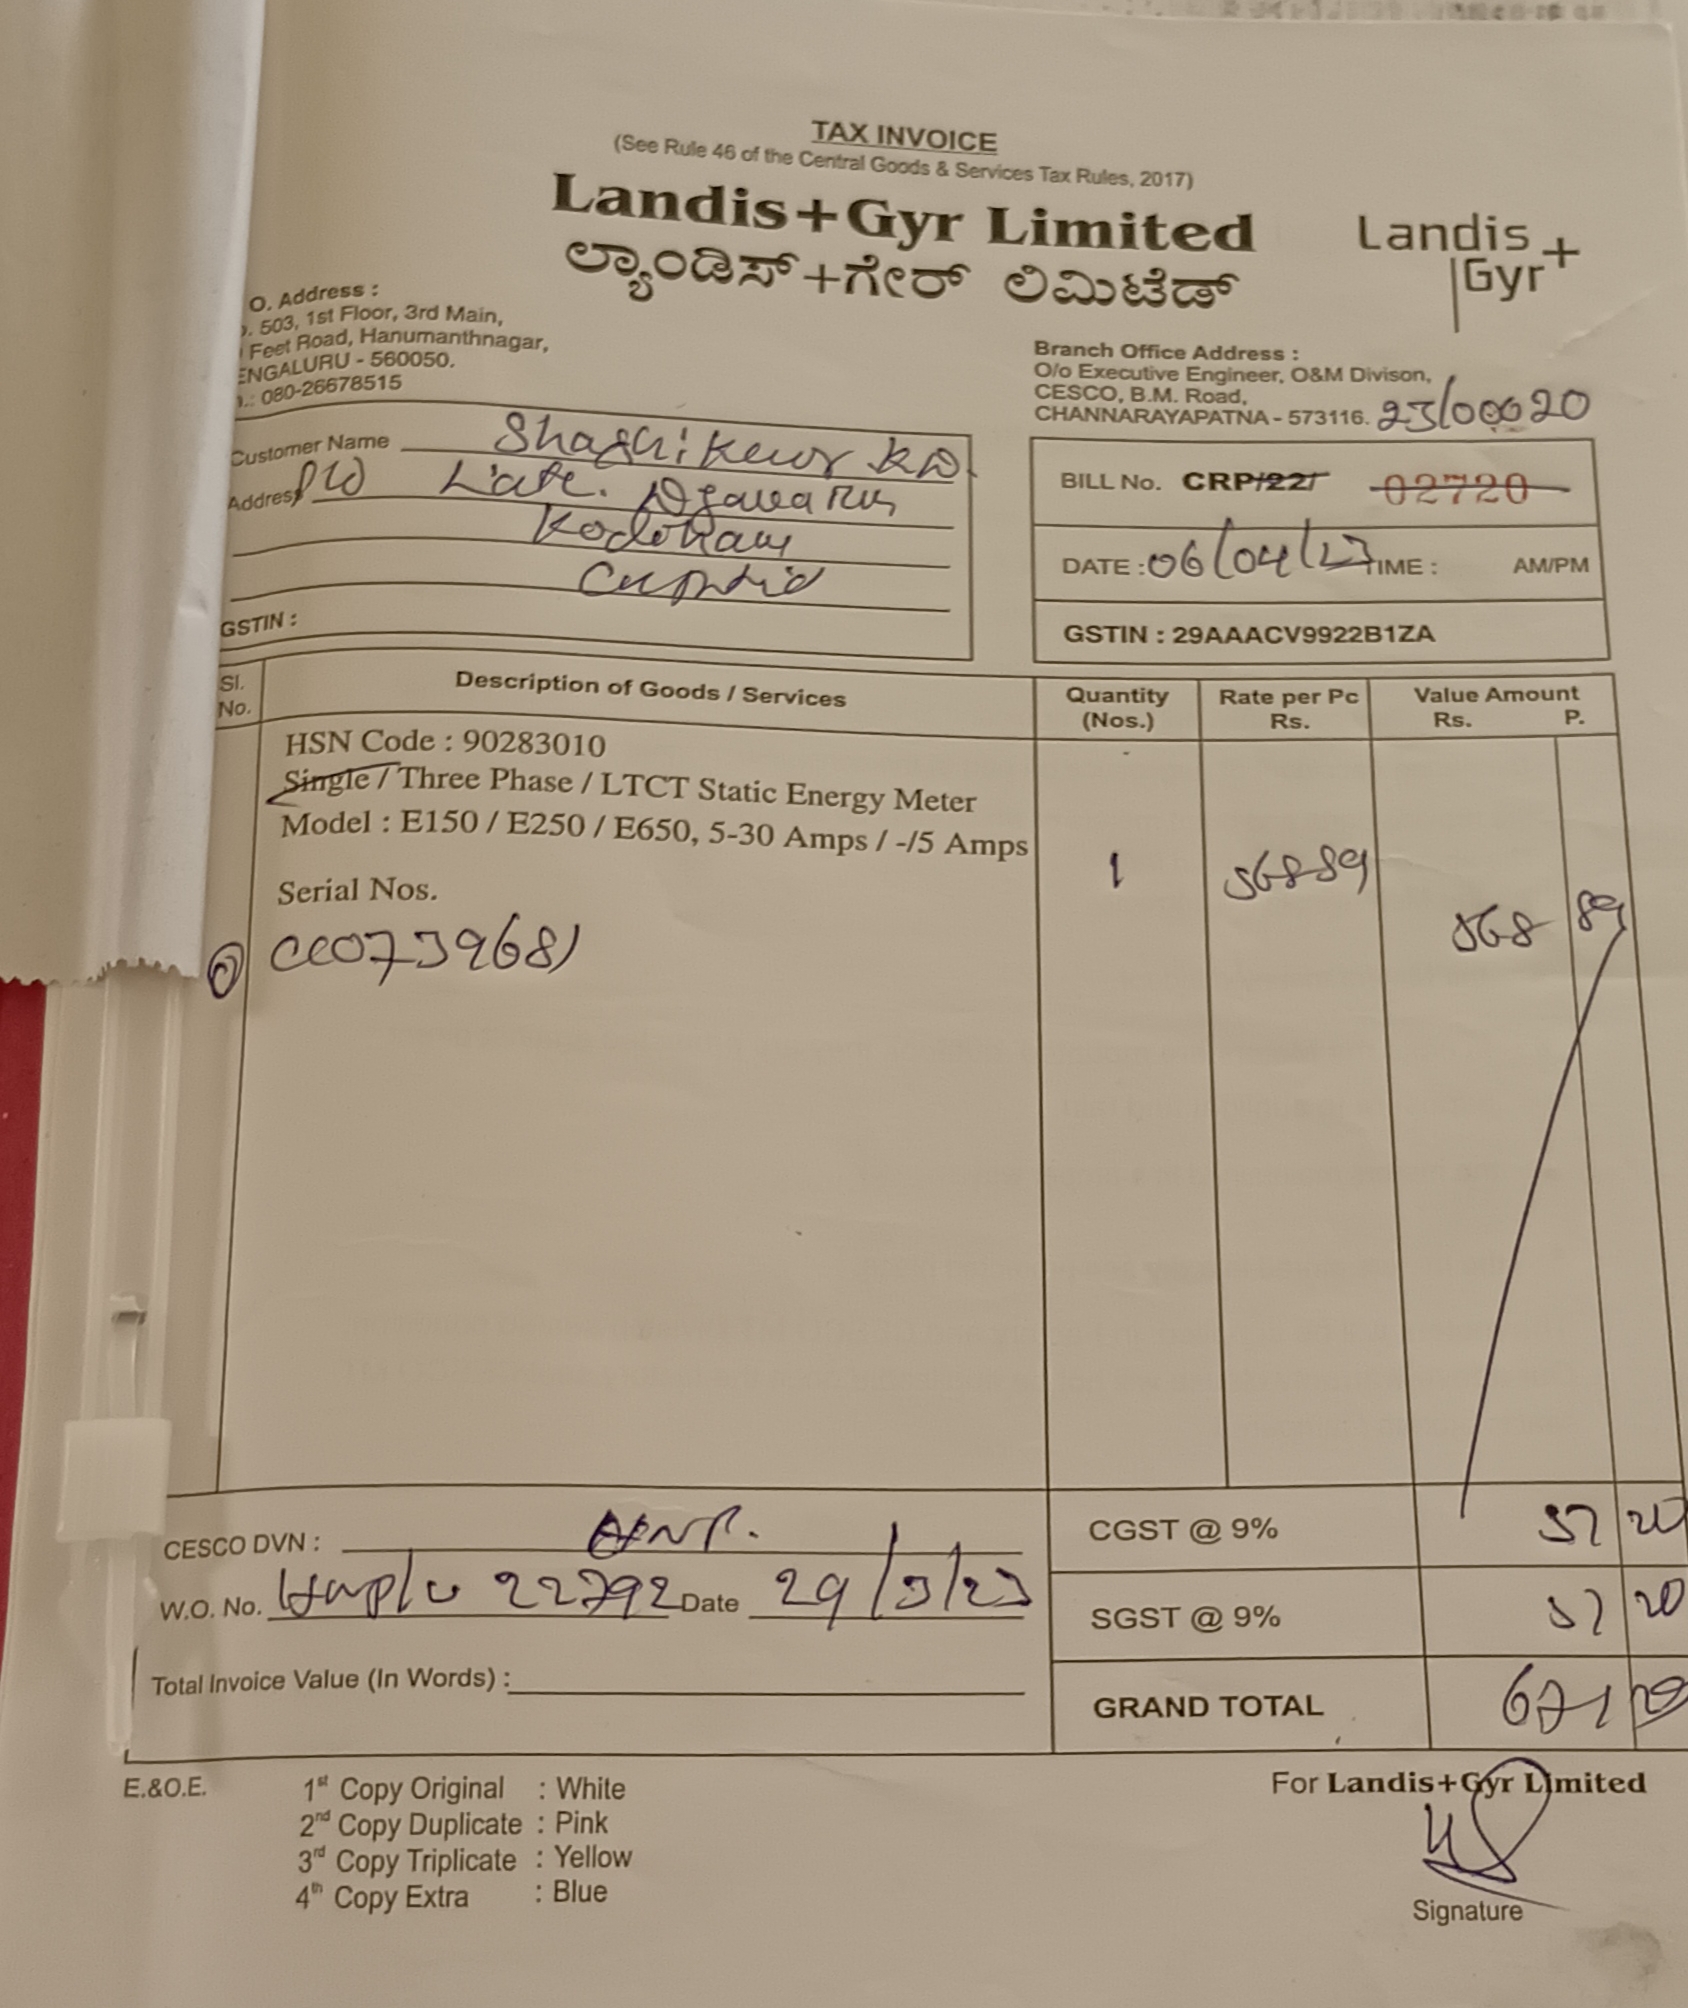 TAX INVOICE
(See Rule 46 of the Central Goods & Services Tax Rules, 2017)
Landis+Gyr Limited
ಲ್ಯಾಂಡಿಸ್+ಗೇರ್ ಲಿಮಿಟೆಡ್
Landis+
Gyr
O. Address :
503, 1st Floor, 3rd Main,
Feet Road, Hanumanthnagar,
ENGALURU - 560050.
080-26678515
Branch Office Address :
O/o Executive Engineer, O&M Divison,
CESCO, B.M. Road,
CHANNARAYAPATNA - 573116. 23/00020
Customer Name
Address
Late.
GSTIN :
BILL No. CRP/22/ 02720
DATE : 06/04/23 TIME : AM/PM
GSTIN : 29AAACV9922B1ZA
Sl. No. Description of Goods / Services Quantity (Nos.) Rate per Pc Rs. Value Amount Rs. P.
HSN Code : 90283010
Single / Three Phase / LTCT Static Energy Meter
Model : E150 / E250 / E650, 5-30 Amps / -/5 Amps
1 56889
Serial Nos.
568 89
CESCO DVN :
W.O. No. 22792 Date 29/3/23
Total Invoice Value (In Words) :
CGST @ 9% 57 20
SGST @ 9% 57 20
GRAND TOTAL 671 29
E.&O.E.
1st Copy Original : White
2nd Copy Duplicate : Pink
3rd Copy Triplicate : Yellow
4th Copy Extra : Blue
For Landis+Gyr Limited
Signature